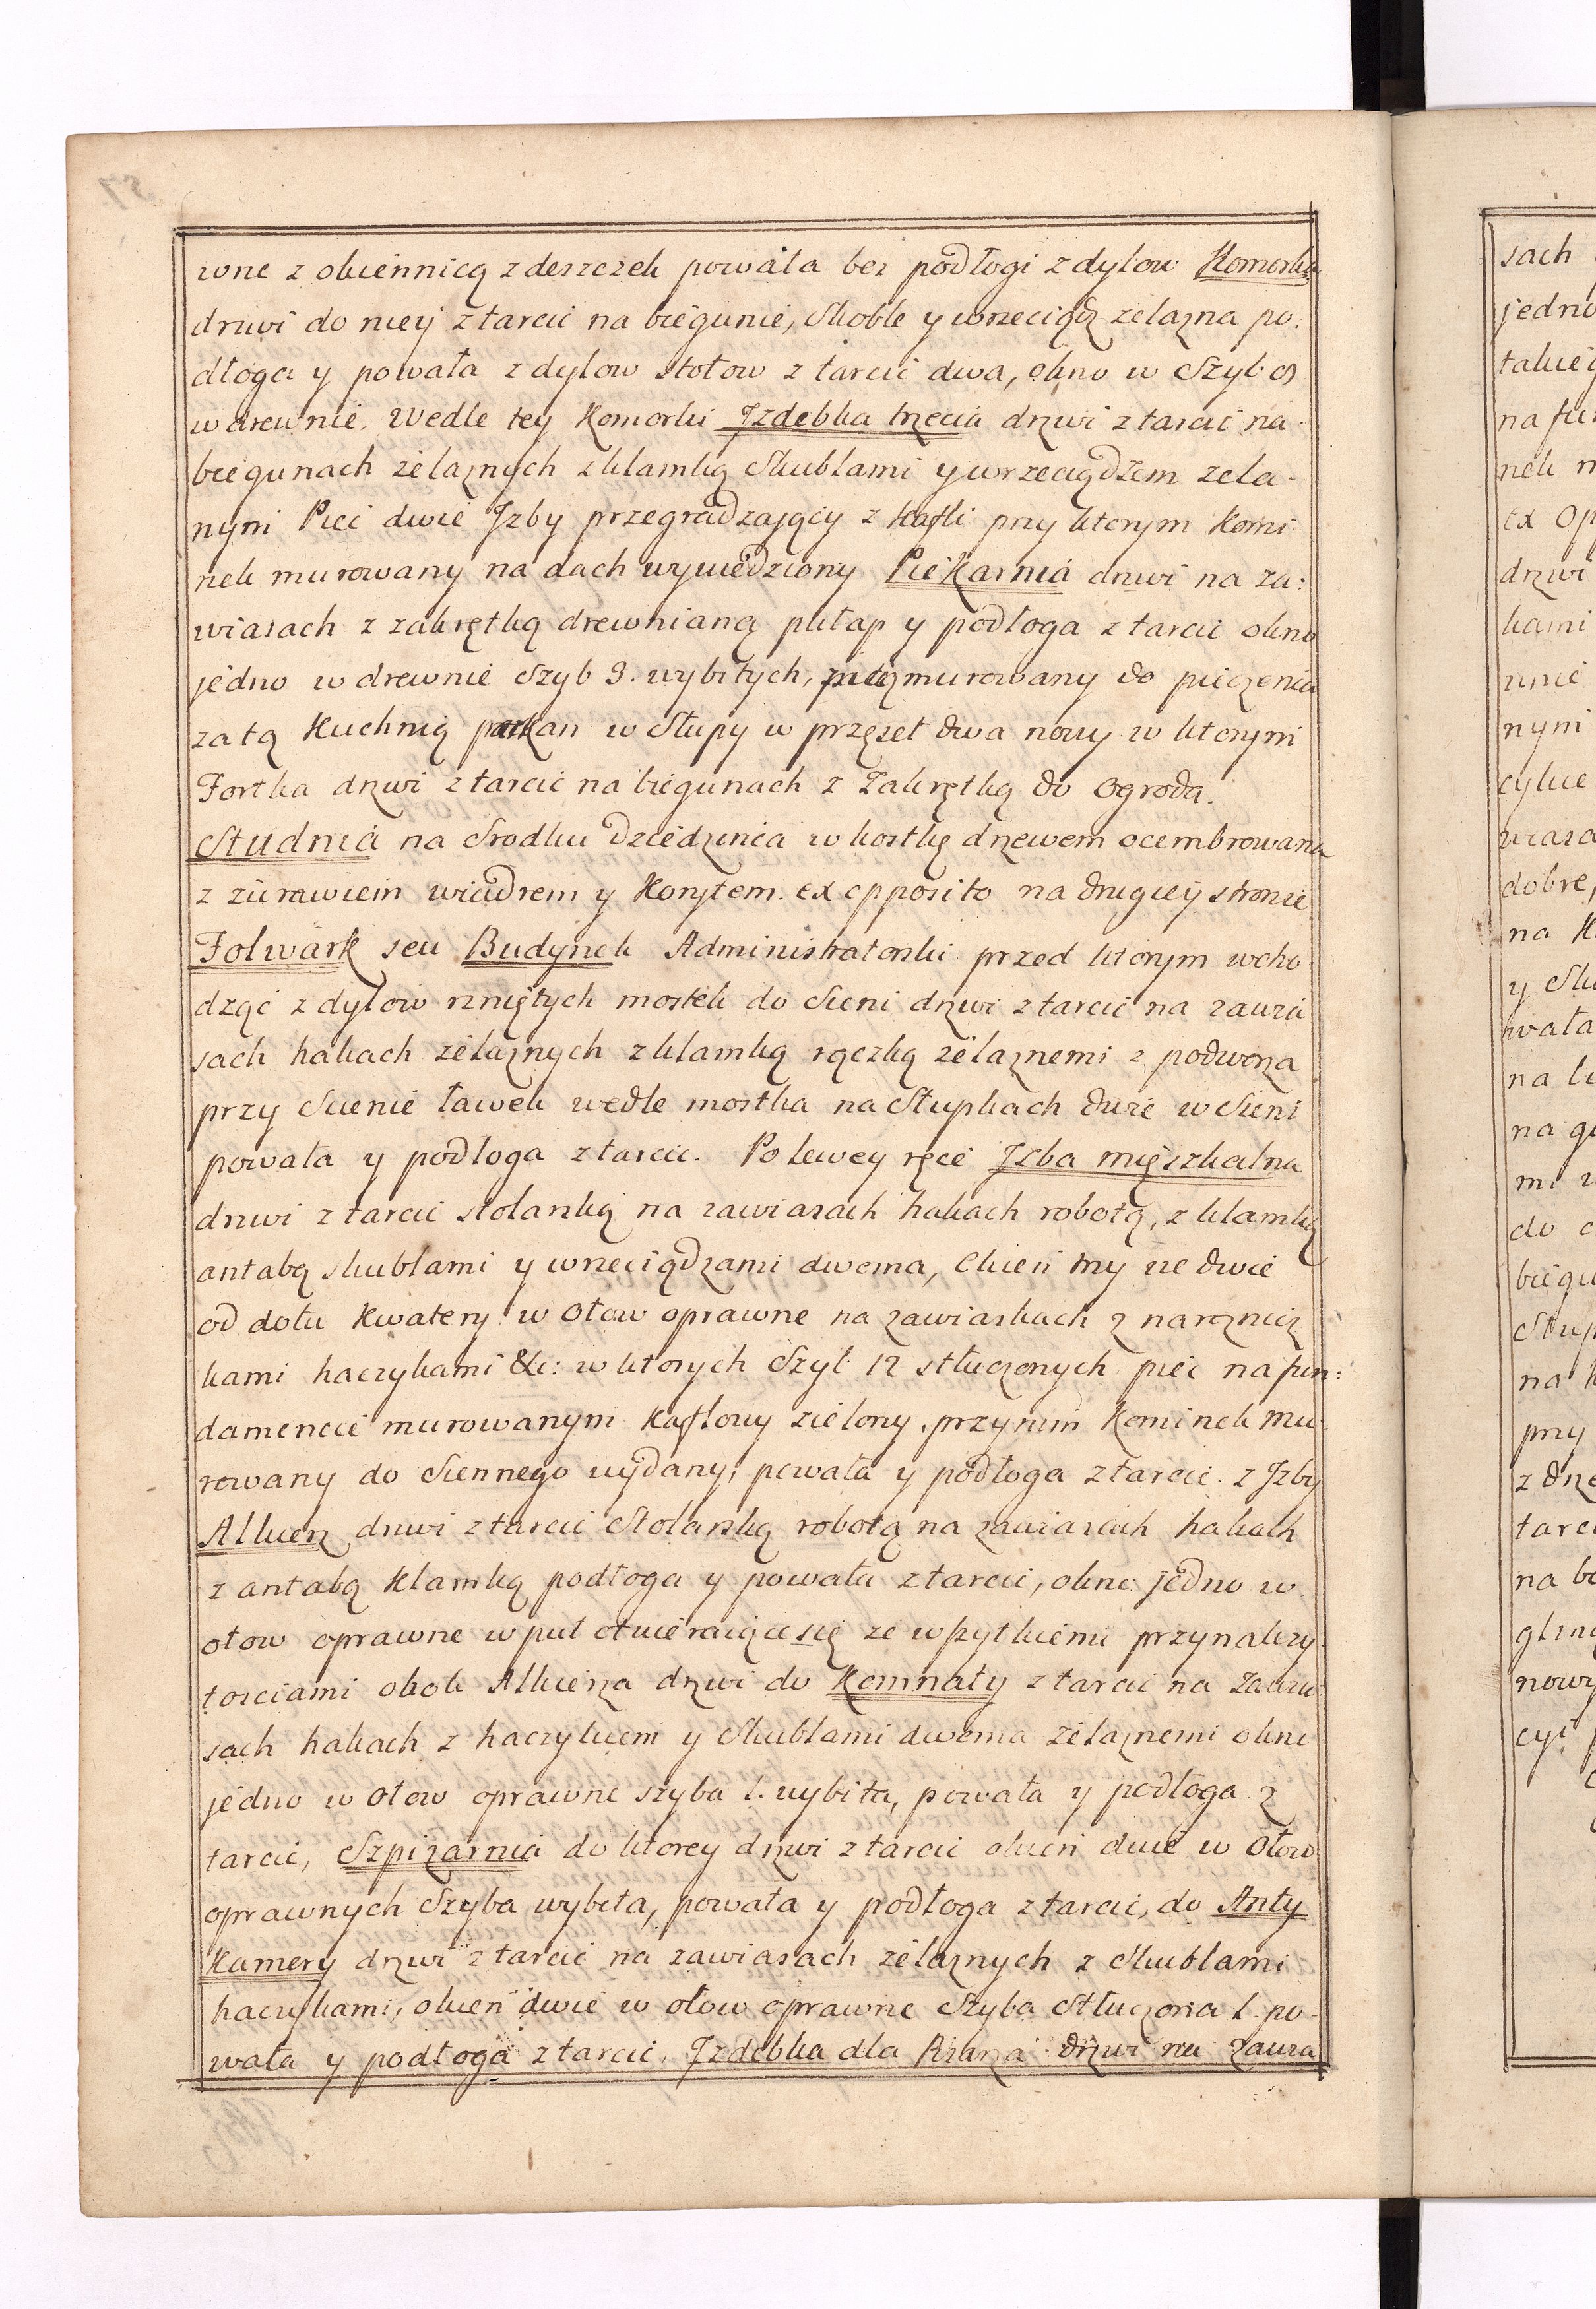 wne z okiennicą z deszczek powała bez podłogi z dylow Komorka
drzwi do niey z tarcic na biegunie, Skoble y wrzeciądz zelazna po.
dłoga y powała z dylow stołow z tarcic dwa, okno w Szyb 9
w drewnie. Wedle tey Komorki Jzdebka trzecia drzwi z tarcic na
biegunach żelaznych z klamką Skublami y wrzeciądzem żela-
nym Piec dwie Jzby przegradzający z kafli przy ktorym Komi
nek murowany na dach wywiedziony Piekarnia drzwi na za:
wiasach z zakrętką drewnianą pułap y podłoga z tarcic okno
jedno w drewnie Szyb 3. wybitych, piec murowany do pieczenia
za tą Kuchnią parkan w Słupy w przęseł dwa nowy w ktorym
Fortka drzwi z tarcic na biegunach z Zakrętką do Ogroda.
Studnia na Srodku Dziedzinca w kostkę drzewem ocembrowana
z żurawiem wiadrem y Korytem. ex opposito na drugiey stronie
Folwark seu Budynek Administratorski przed ktorym wcho
dząc z dylow rzniętych mostek do Sieni drzwi z tarcic na zawia
sach hakach żelaznych z klamką rączką żelaznemi z podworza
przy Scienie ławek wedle mostka na Słupkach dwie w Sieni
powała y podłoga z tarcic. Po lewey ręce Jzba mięszkalna
drzwi z tarcic stolarską na zawiasach hakach robotą, z klamką
antabą skublami y wrzeciądzami dwoma, Okien trzy ze dwie
od dołu Kwatery w ołow oprawne na zawiaskach z narożnicz
kami haczykami &c: w ktorych Szyb 12 stłuczonych piec na fun:
damencie murowanym Kaflowy zielony przy nim Kominek mu
rowany do Siennego wydany, powała y podłoga z tarcic z Jzby
Alkierz drzwi z tarcic Stolarską robotą na zawiasach hakach
z antabą klamką podłoga y powała z tarcic, okno jedno w
ołow oprawne w puł otwieraiące się ze wszytkiemi przynależy
tosciami obok Alkierza drzwi do Komnaty z tarcic na Zawia
sach hakach z haczykiem y Skublami dwoma żelaznemi okno
jedno w ołow oprawne szyba 1. wybita, powała y podłoga z
tarcic, Szpizarnia do ktorey drzwi z tarcic okien dwie w ołow
oprawnych Szyba wybita, powała y podłoga z tarcic, do Anty
Kamery drzwi z tarcic na zawiasach żelaznych z Skublami
haczykami, okien dwie w ołow oprawne Szyba Stłuczona 1. po
wała y podłoga z tarcic, Jzdebka dla Pisarza drzwi na Zawia